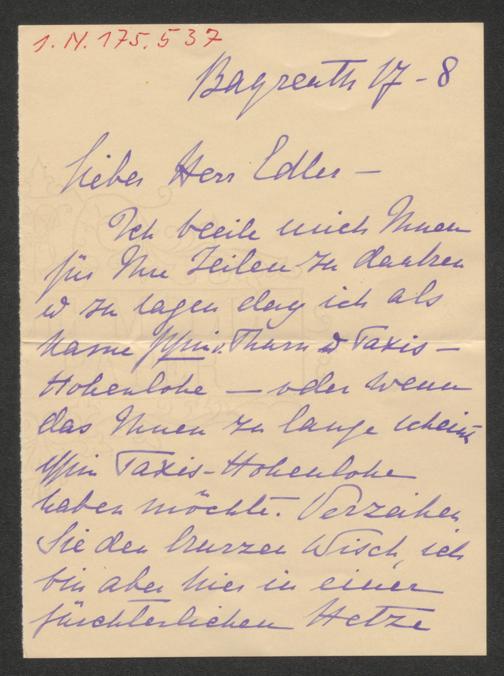 I.N. 175.537
Bayreuth 17 - 8
Lieber Herr Edler -
Ich beeile mich Ihnen
für Ihre Zeilen zu danken
u zu sagen daß ich als
Name v. Thurn & Taxis-
Hohenlohe - oder wenn
das Ihnen zu lange scheint
Taxis-Hohenlohe
haben möchte. Verzeihen
Sie den kurzen Wisch, ich
bin aber hier in einer
fürchterlichen Hetze